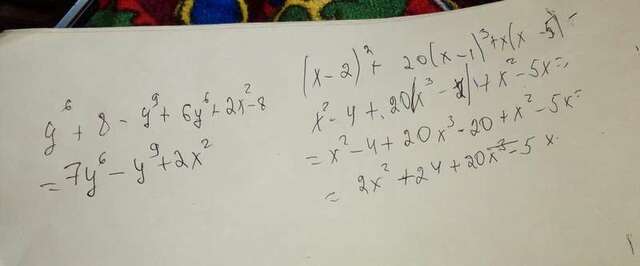 y⁶ + 8 - y⁹ + 6y⁶ + 2x² - 8
= 7y⁶ - y⁹ + 2x²
(x-2)² + 20(x-1)³ + x(x-5) =
x² - 4 + 20(x³ - 1) + x² - 5x =
= x² - 4 + 20x³ - 20 + x² - 5x =
= 2x² + 24 + 20x³ - 5x